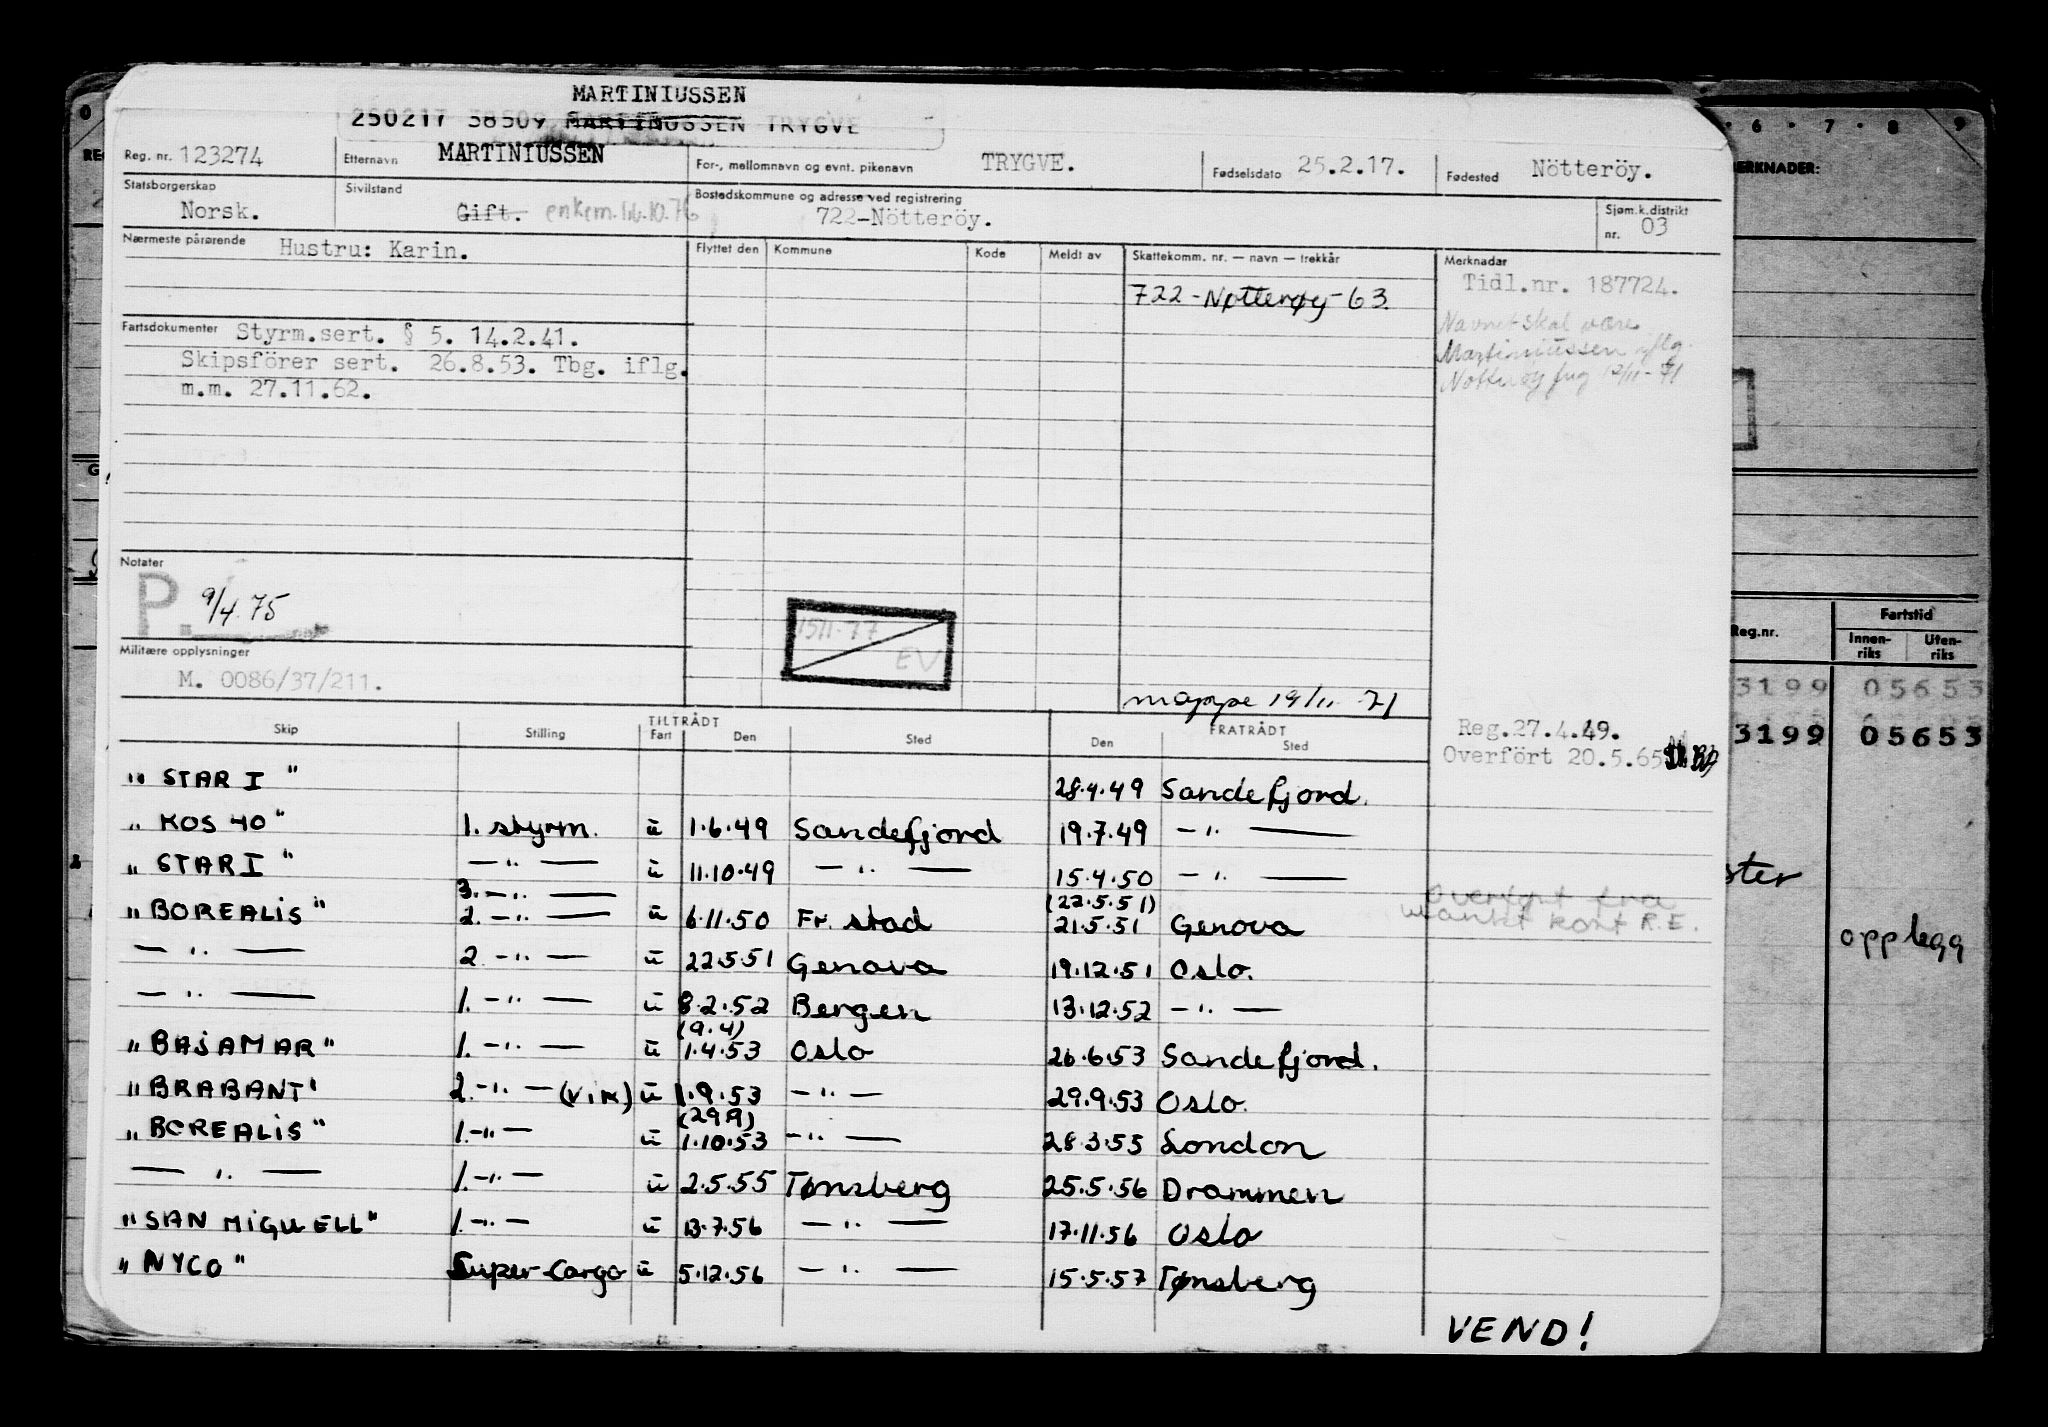 MARTINIUSSEN
250217 38509 MARTINUSSEN TRYGVE
Reg. nr. 123274 Etternavn MARTINIUSSEN For-, mellomnavn og evnt. pikenavn TRYGVE. Fødselsdato 25.2.17. Fødested Nötteröy.
Statsborgerskap Norsk. Sivilstand Gift. enkem. 16.10.76 Bostedskommune og adresse ved registrering 722-Nötteröy. Sjøm.k.distrikt nr. 03
Nærmeste pårørende Hustru: Karin. Flyttet den Kommune Kode Meldt av Skattekomm. nr. — navn — trekkår Merknadar
722 - Nøtterøy - 63
Tidl.nr. 187724.
Navnet skal være
Martiniussen iflg.
Nøtterøy 12/11-71
Fartsdokumenter Styrm.sert. § 5. 14.2.41.
Skipsförer sert. 26.8.53. Tbg. iflg.
m.m. 27.11.62.
Notater
P. 9/4.75
EV
Militære opplysninger
M. 0086/37/211.
mappe 19/11-71
Skip Stilling TILTRÅDT Fart Den Sted FRATRÅDT Den Sted
Reg.27.4.49.
Overfört 20.5.65
„ STAR I " 28.4.49 Sandefjord.
„ KOS 40 " 1. styrm. u 1.6.49 Sandefjord 19.7.49 — " —
„ STAR I " — " — u 11.10.49 — " — 15.4.50 — " —
3. — " — (22.5.51)
„ BOREALIS " 2. — " — u 6.11.50 Fr. stad 21.5.51 Genova
Overført fra
blankt kort R.E.
— " — 2. — " — u 22.5.51 Genova 19.12.51 Oslo.
— " — 1. — " — u 8.2.52 Bergen 13.12.52 — " —
(9.4)
„ BAJAMAR " 1. — " — u 1.4.53 Oslo 26.6.53 Sandefjord.
„ BRABANT " 2. — " — (vik) u 1.9.53 — " — 29.9.53 Oslo.
(29.9)
„ BOREALIS " 1. — " — u 1.10.53 — " — 28.3.55 London
— " — 1. — " — u 2.5.55 Tønsberg 25.5.56 Drammen
„ SAN MIGUELL " 1. — " — u 13.7.56 — " — 17.11.56 Oslo
„ NYCO " Super-Cargo u 5.12.56 — " — 15.5.57 Tønsberg
VEND!
6 7 8 9
MERKNADER:
Reg.nr. Fartstid
Innen-riks Uten-riks
3199 05653
3199 05653
opplegg